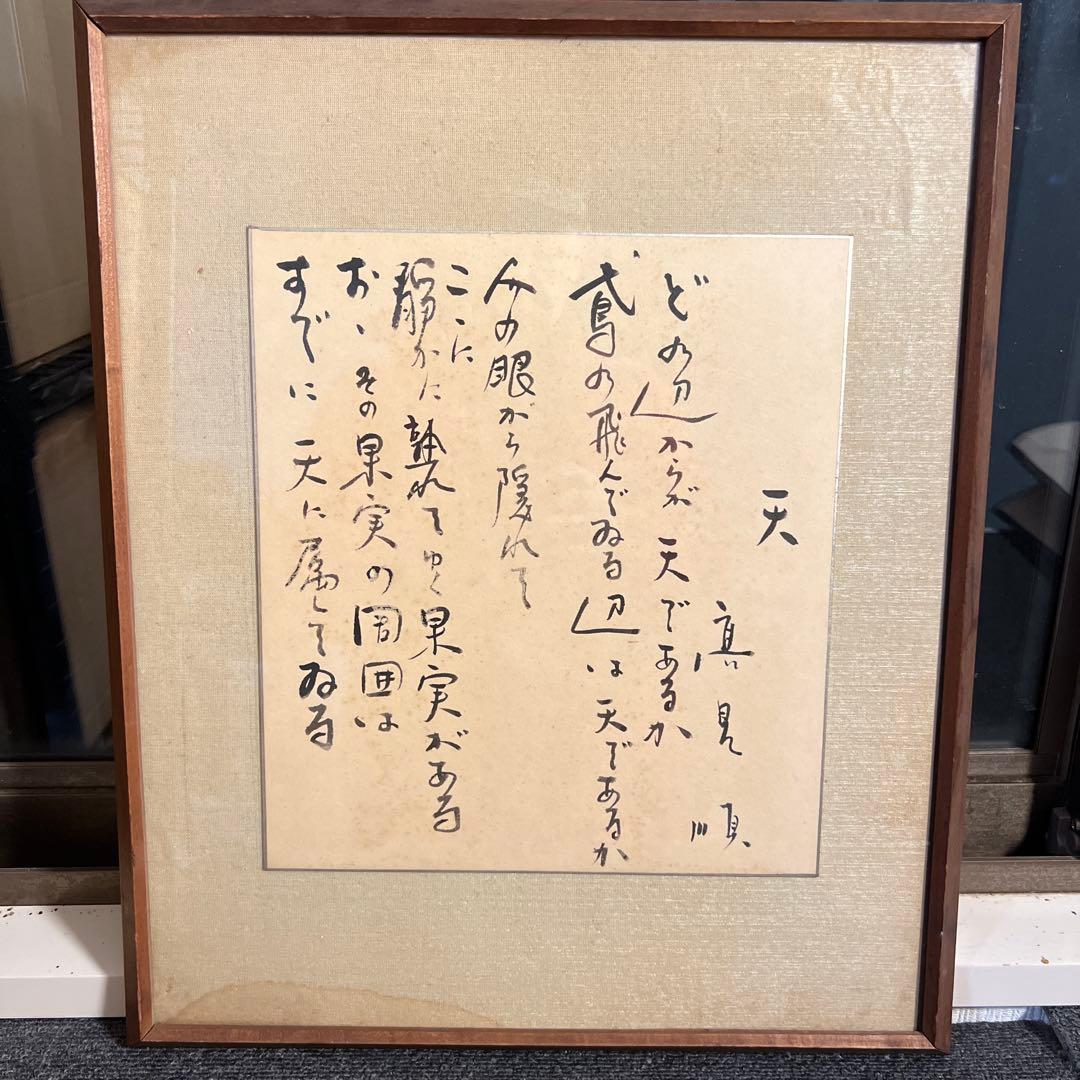 天
高見順
どの辺からが天であるか
鳶の飛んでゐる辺は天であるか
人の眼から隠れて
こゝに
静かに熟れてゆく果実がある
おゝその果実の周囲は
すでに天に属してゐる